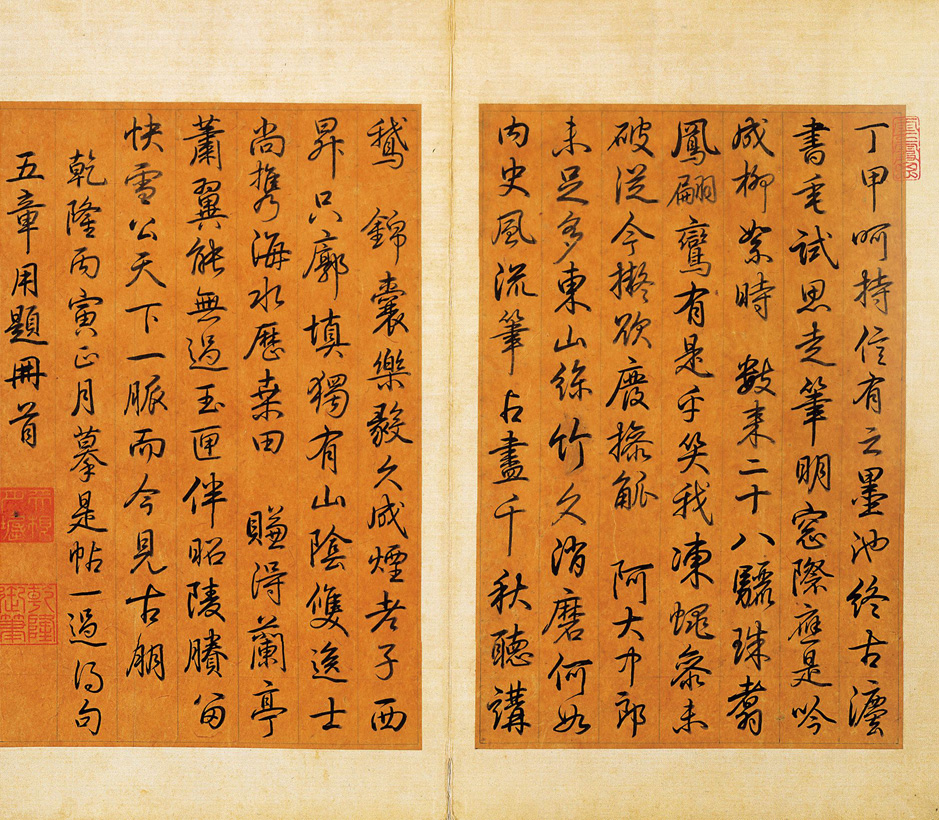 丁甲呵持信有之墨池終古灋
書垂試思走筆明窓際應是吟
成柳絮時 數来二十八驪珠翥
鳳翩鸞有是乎笑我凍蠅參未
破從今擬欲廢操觚 阿大中郎
未足多東山絲竹久消磨何如
內史風流筆占盡千秋聽講
鵝 錦囊樂毅久成煙老子西
昇只廓填獨有山陰雙逸士
尚攜海水歷桒田 賺得蘭亭
蕭翼能無過玉匣伴昭陵賸留
快雪公天下一脈而今見古朋
乾隆丙寅正月摹是帖一過得句
五章用題冊首
乾隆御筆